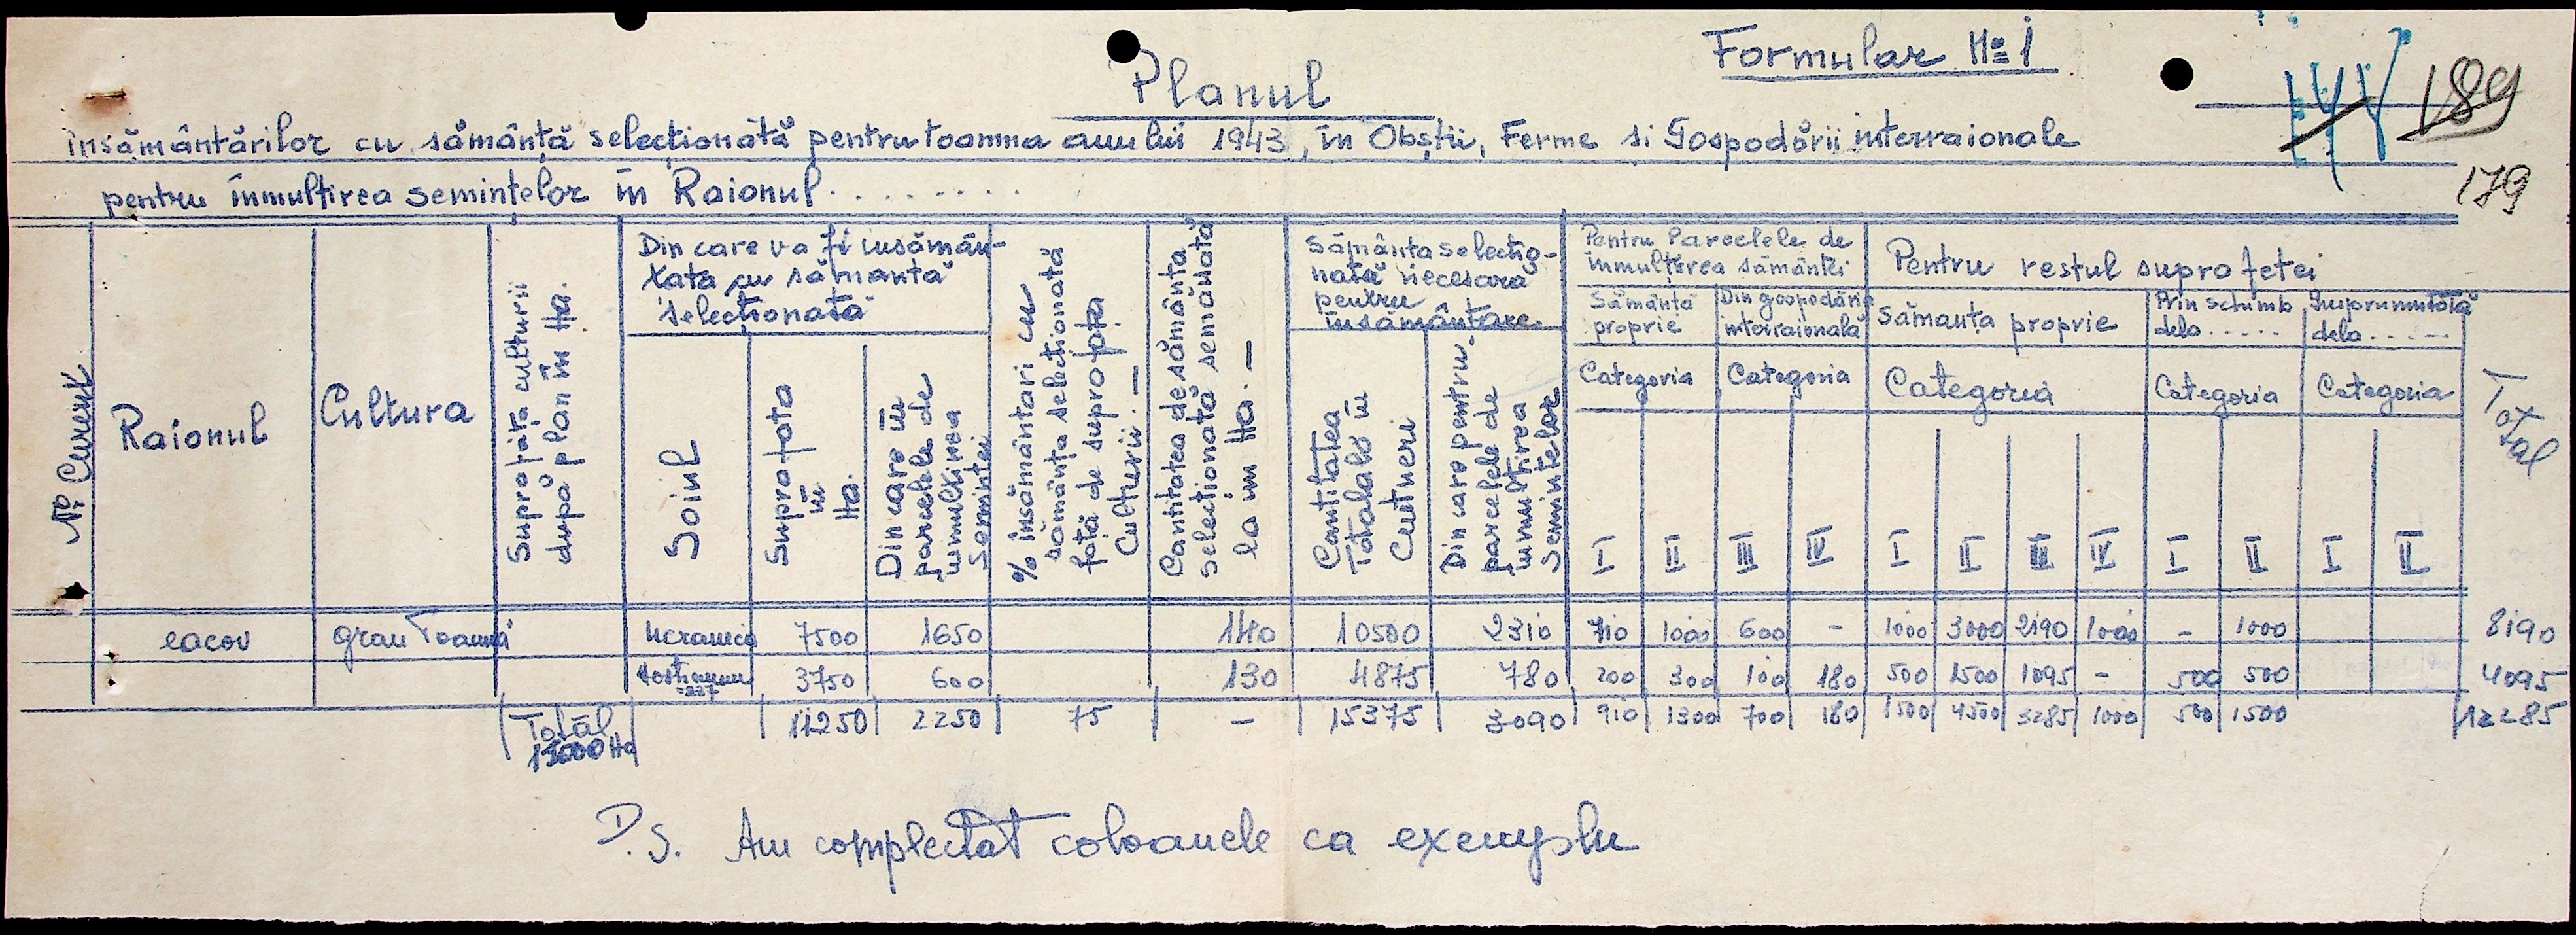 Formular № 1
Planul
144 189
însămânțărilor cu sămânță selecționată pentru toamna anului 1943, în Obștii, Ferme si Gospodării interraionale
pentru înmulțirea semințelor în Raionul . . . . . . .
179
№ Curent
Raionul
Cultura
Suprafața culturii
după plan în Ha.
Din care va fi însămân-
țată cu sămanță
selecționată
Soinl
Suprafata
în
Ha.
Din care în
parcelele de
înmulțirea
semintei
% însămânțari cu
sămânța selecționată
față de suprafața
Culturii. —
Cantitatea de sămânța
selecționată semănată
la im Ha. —
Sământa selectio-
nată necesară
pentru
însămânțare.
Cantitatea
Totală în
Cutneri
Din care pentru
parcelele de
înmultirea
semințelor
Pentru Parcelele de
inmulțirea sămânței
Sămânța
proprie
Din gospodăria
interraională
Categoria
Categoria
I II III IV
Pentru restul suprafetei
Sămanța proprie
Categoria
I II III IV
Prin schimb
dela . . . . .
Categoria
I II
Împrumutată
dela . . . . .
Categoria
I II
Total
eacov grau Toamnă Ucrainca 7500 1650 140 10500 2310 710 1000 600 - 1000 3000 2190 1000 - 1000 8190
237 3750 600 130 4875 780 200 300 100 180 500 1500 1095 - 500 500 4095
Total 11250 2250 75 - 15375 3090 910 1300 700 180 1500 4500 3285 1000 500 1500 12285
15000 Ha
D.S. Am complectat coloanele ca exemplu